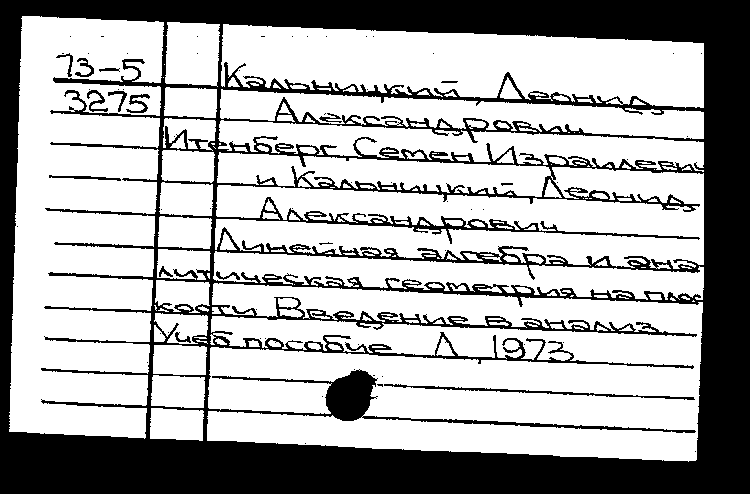 73-5 Кальницкий, Леонид
3275 Александрович
Итенберг, Семен Израилевич
и Кальницкий, Леонид
Александрович
Линейная алгебра и ана
литическая геометрия на плос
кости Введение в анализ.
Учеб пособие Л., 1973.